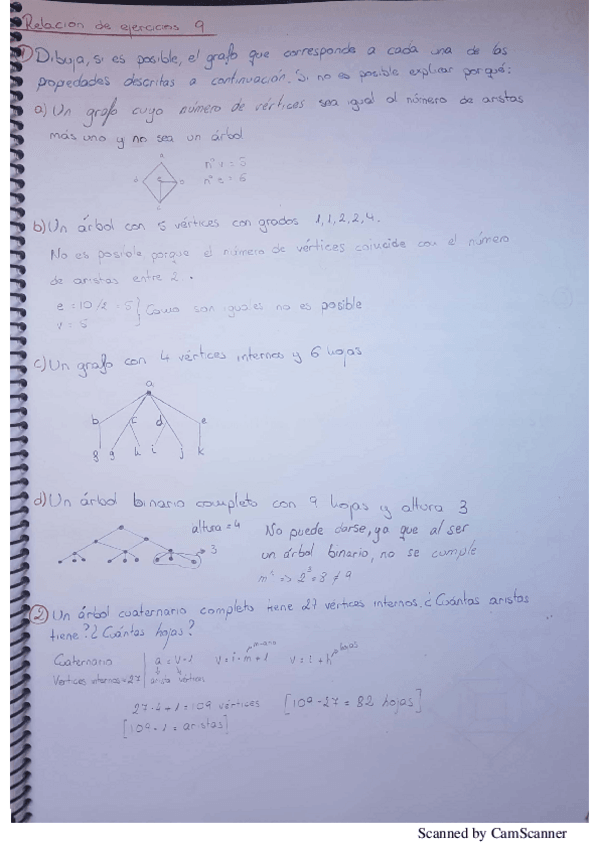 Relacion de ejercicios 9
1) Dibuja, si es posible, el grafo que corresponda a cada una de las
propiedades descritas a continuación. Si no es posible explicar porqué:
a) Un grafo cuyo número de vértices sea igual al número de aristas
más uno y no sea un árbol
nº v = 5
nº e = 6
b) Un árbol con 5 vértices con grados 1, 1, 2, 2, 4.
No es posible porque el número de vértices coincide con el número
de aristas entre 2.
e = 10/2 = 5
v = 5
Como son iguales no es posible
c) Un grafo con 4 vértices internos y 6 hojas
a
b c d e
g h i j k
d) Un árbol binario completo con 9 hojas y altura 3
altura = 4
3
No puede darse, ya que al ser
un árbol binario, no se cumple
=> 2³ = 8 ≠ 9
2) Un árbol cuaternario completo tiene 27 vértices internos. ¿Cuántas aristas
tiene? ¿Cuántas hojas?
Cuaternario
a = v - 1 v = i · m + 1 v = i + h hojas
Vértices internos = 27 arista vértices
27 · 4 + 1 = 109 vértices [109 - 27 = 82 hojas]
[109 - 1 = aristas]
Scanned by CamScanner